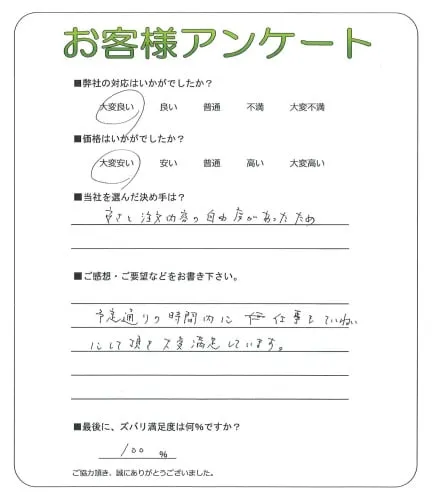 お客様アンケート
■弊社の対応はいかがでしたか？
大変良い 良い 普通 不満 大変不満
■価格はいかがでしたか？
大変安い 安い 普通 高い 大変高い
■当社を選んだ決め手は？
安さと注文内容の自由度があったため
■ご感想・ご要望などをお書き下さい。
予定通りの時間内に 仕事をていねい
にして頂き大変満足しています。
■最後に、ズバリ満足度は何%ですか？
100 %
ご協力頂き、誠にありがとうございました。